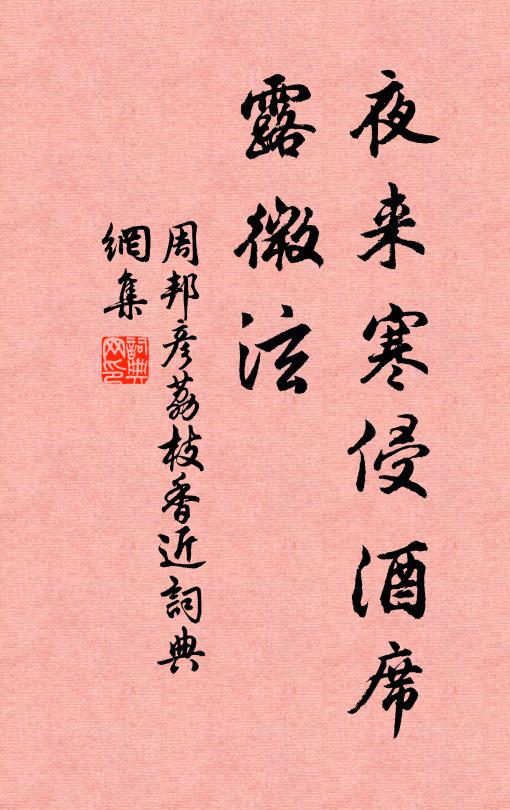 夜来寒侵酒席
露微泫
周邦彦荔枝香近詞典
網集
詞典
网印